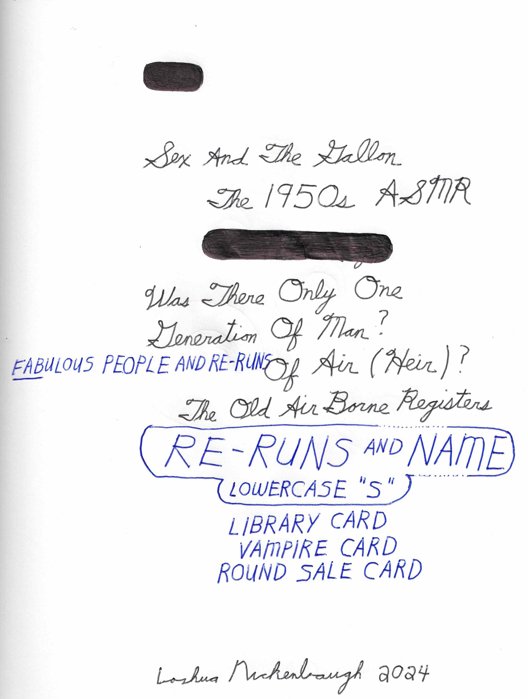 Sex And The Gallon
The 1950s ASMR
Was There Only One
Generation Of Man?
FABULOUS PEOPLE AND RE-RUNS
Of Air (Heir)?
The Old Air Borne Registers
RE-RUNS AND NAME
LOWERCASE "S"
LIBRARY CARD
VAMPIRE CARD
ROUND SALE CARD
2024